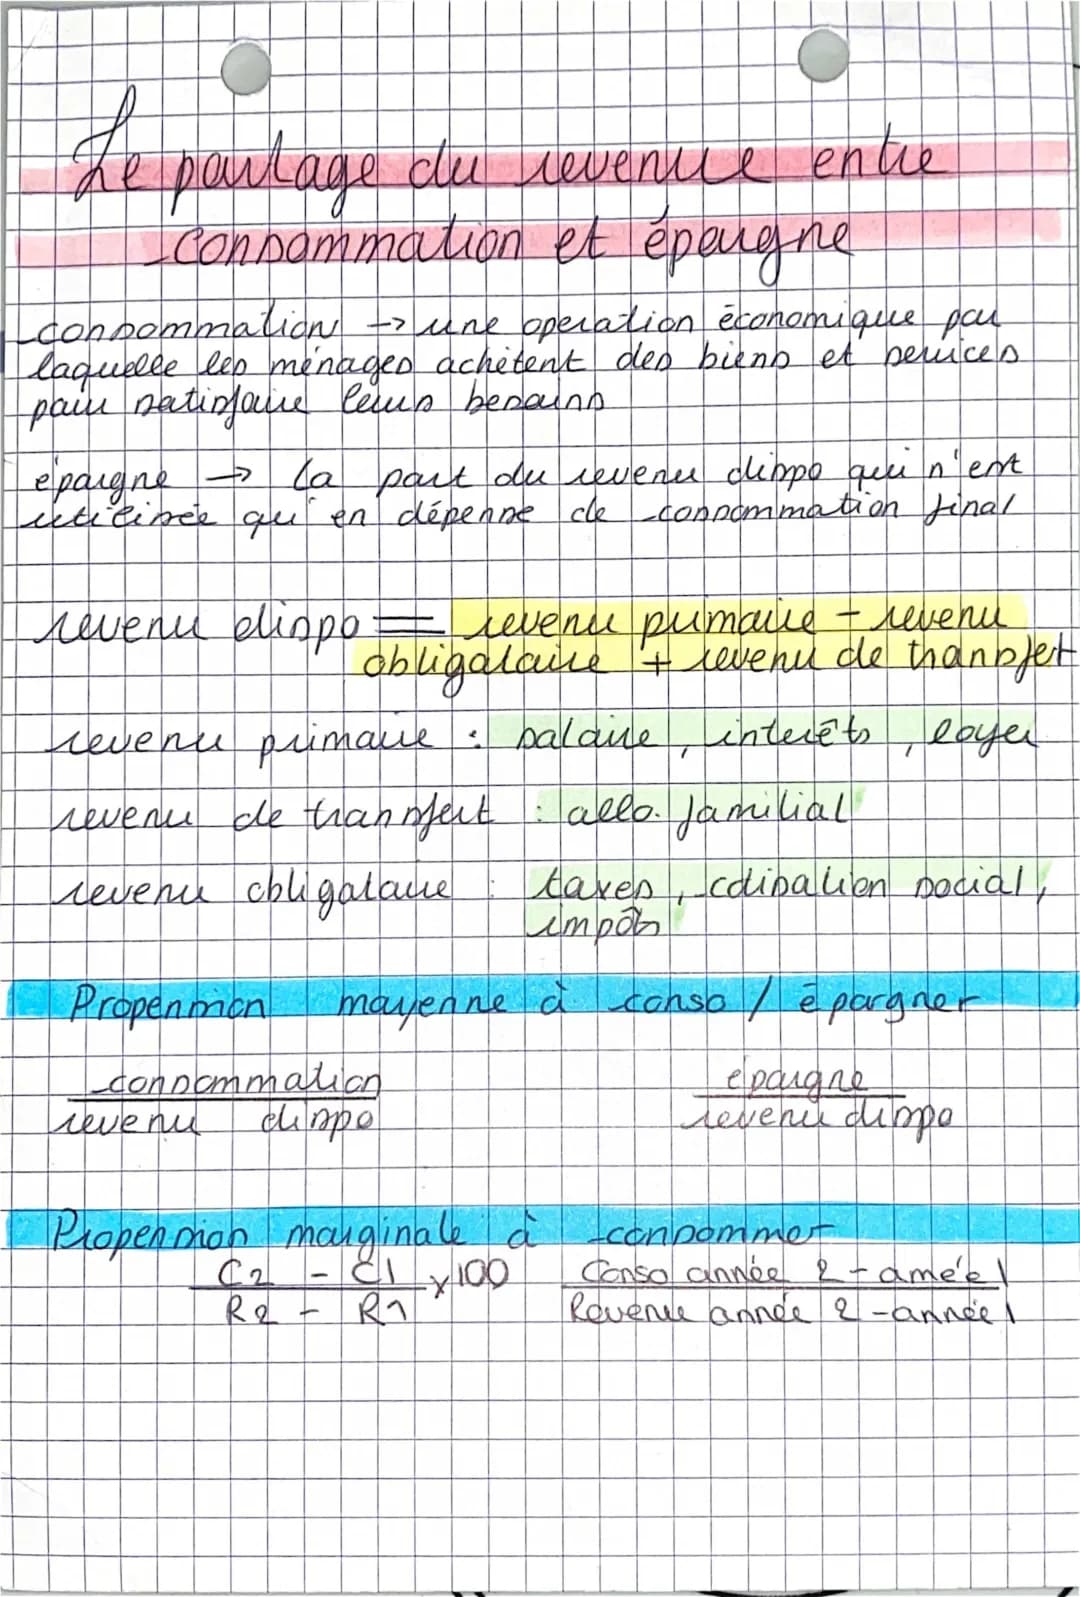 Le partage du revenue entre
consommation et épargne
consommation → une operation économique par
laquelle les ménages achètent des biens et services
pour satisfaire leurs besoins
épargne → la part du revenu dispo qui n'est
utilisée qu'en dépense de consommation final
revenu dispo = revenu primaire - revenu
obligatoire + revenu de transfert
revenu primaire : salaire, interêts, loyer
revenu de transfert : allo. familial
revenu obligatoire : taxes, cotisation social,
impôts
Propension moyenne à conso / épargner
consommation épargne
revenu dispo revenu dispo
Propension marginale à consommer
C2 - C1 x100 Conso année 2 - année 1
R2 - R1 Revenue année 2 - année 1